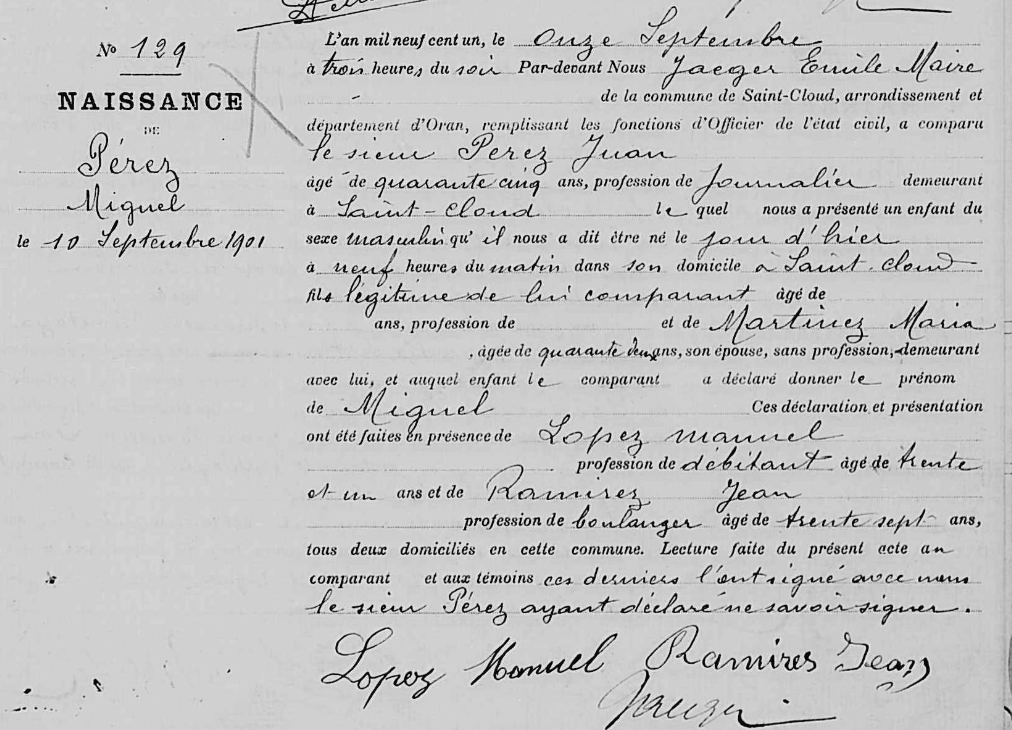 N° 129
NAISSANCE
DE
Pérez
Miguel
le 10 Septembre 1901
L'an mil neuf cent un, le onze Septembre
à trois heures du soir Par-devant Nous Jaeger Emile Maire
de la commune de Saint-Cloud, arrondissement et
département d'Oran, remplissant les fonctions d'Officier de l'état civil, a comparu
le sieur Perez Juan
âgé de quarante cinq ans, profession de Journalier demeurant
à Saint-Cloud le quel nous a présenté un enfant du
sexe masculin qu'il nous a dit être né le jour d'hier
à neuf heures du matin dans son domicile à Saint-Cloud
fils légitime de lui comparant âgé de
ans, profession de et de Martinez Maria
, âgée de quarante deux ans, son épouse, sans profession, demeurant
avec lui, et auquel enfant le comparant a déclaré donner le prénom
de Miguel Ces déclaration et présentation
ont été faites en présence de Lopez manuel
profession de débitant âgé de trente
et un ans et de Ramirez Jean
profession de boulanger âgé de trente sept ans,
tous deux domiciliés en cette commune. Lecture faite du présent acte au
comparant et aux témoins ces derniers l'ont signé avec nous
le sieur Pérez ayant déclaré ne savoir signer.
Lopez Manuel Ramires Jean
Jaeger